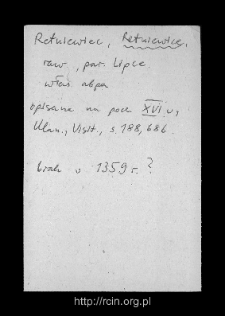 Retniewiec, Retniewice,
raw, par. Lipce
włas abpa
opisane na pocz XVI w,
Ulan., Visit., s. 188, 686.
brak w 1359 r. ?
http://rcin.org.pl